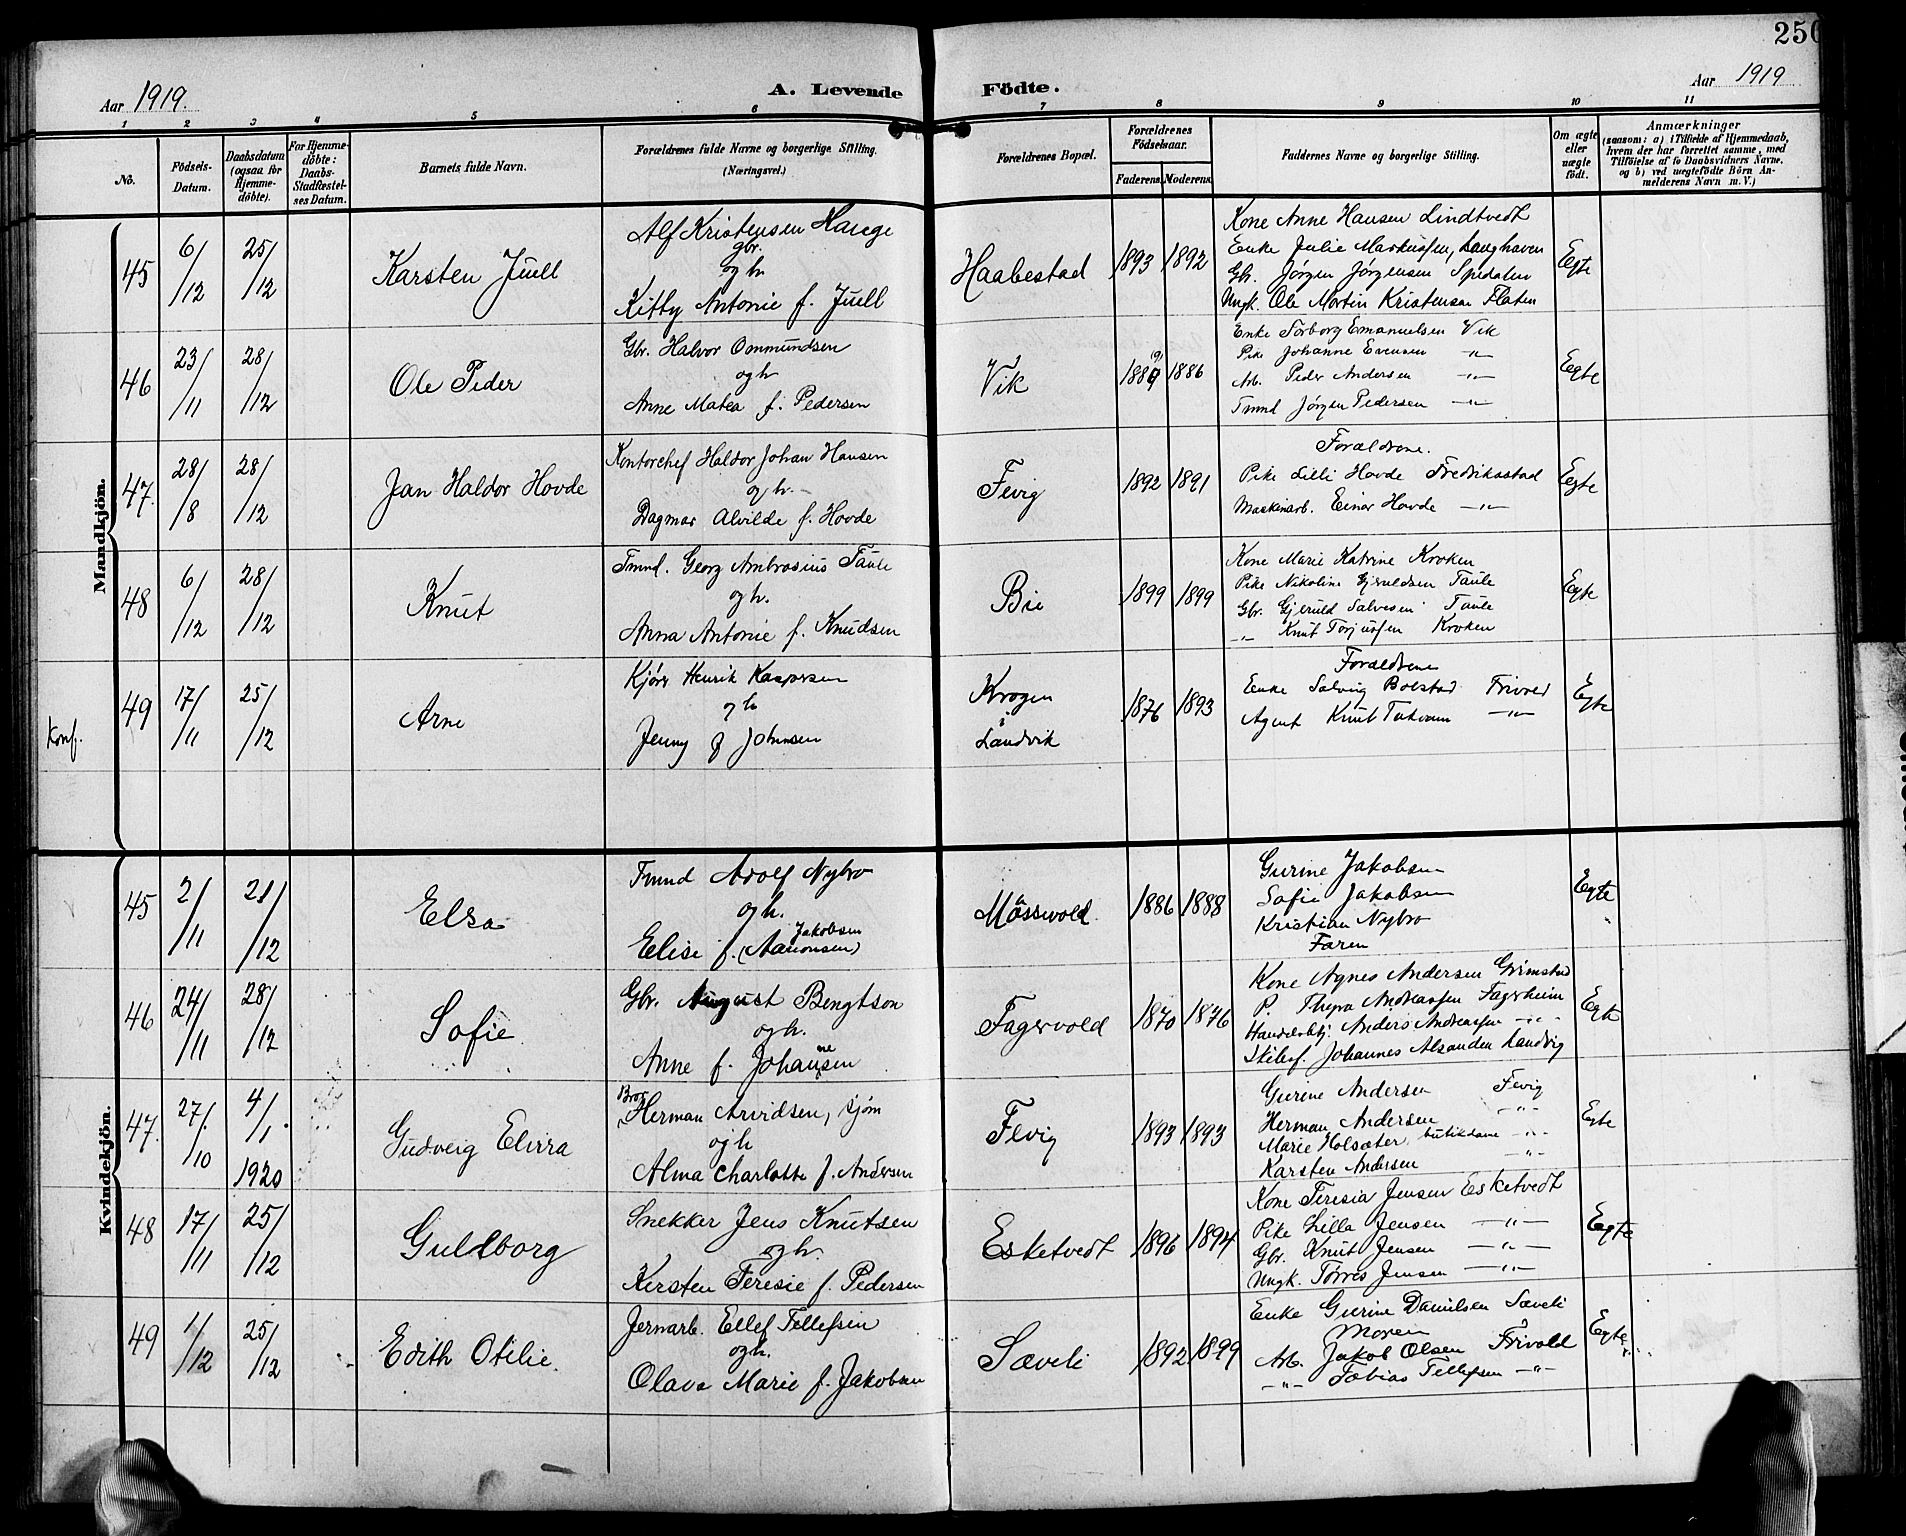 250
Aar 1919.
A. Levende Födte.
Aar 1919
1 2 3 4 5 6 7 8 9 10 11
No.
Födsels-Datum.
Daabsdatum (ogsaa for Hjemmedöbte).
For Hjemmedöbte: Daabs-Stadfæstelses Datum.
Barnets fulde Navn.
Forældrenes fulde Navne og borgerlige Stilling. (Næringsvei.)
Forældrenes Bopæl.
Forældrenes Födselsaar.
Faderens. Moderens.
Faddernes Navne og borgerlige Stilling.
Om ægte eller uægte födt.
Anmærkninger
(saasom: a) i Tilfælde af Hjemmedaab, hvem der har forrettet samme, med Tilföielse af to Daabsvidners Navne. og b) ved uægtefödte Börn Anmelderens Navn m. V.)
Mandkjön.
45 6/12 25/12 Karsten Juell
Alf Kristensen Harege
gbr.
og h.
Kitty Antonie f. Juell
Haabestad 1893 1892
Kone Anne Hansen Lindtvedt
Enke Julie Markussen, Langhaven
Gbr. Jørgen Jørgensen Spedalen
Ungk. Ole Martin Kristensen Flaten
Egte
46 23/11 28/12 Ole Peder
Gbr. Halvor Ommundsen
og h
Anne Matea f. Pedersen
Vik 1889 1886
Enke Torborg Emanuelsen Vik
Pike Johanne Evensen -"-
Arb. Peder Andersen -"-
Tmnd Jørgen Pedersen -"-
Egte
47. 28/8 28/12 Jan Haldor Hovde
Kontorchef Haldor Johan Hansen
og h.
Dagmar Alvilde f. Hovde
Fevig 1892 1891
Forældrene.
Pike Lilli Hovde Fredrikstad
Maskinarb. Einar Hovde -"-
Egte
48 6/12 28/12 Knut
Tmnd. Georg Ambrosius Taule
og h.
Anna Antonie f. Knudsen
Bie 1899 1899
Kone Marie Katrine Kroken
Pike Nikoline Gjeruldsen Taule
Gbr. Gjeruld Salvesen Taule
-"- Knut Torjussen Kroken
Egte
Konf.
49 17/11 25/12 Arne
Kjører Henrik Kaspersen
og h
Jenny f Johnsen
Krogen
i
Landvik
1876 1893
Forældrene
Enke Solveig Bolstad Frivold
Agent Knut -"-
Egte
Kvindekjön.
45 2/11 21/12 Elsa
Tmnd Adolf Nybro
og h.
Jakobsen
Elise f. (Aanonsen)
Møsvold 1886 1888
Gurine Jakobsen
Sofie Jakobsen
Kristian Nybro
Faren
Egte
46 24/11 28/12 Sofie
Gbr. August Bengtson
og h.
Anne f. Johannesen
Fagervold 1870 1876
Kone Agnes Andersen Grimstad
P. Thyra Andreassen Fagerheim
Anders Andreassen -"-
Johannes Landvig
Egte
47. 27/10 4/1 1920 Gudveig Elvira
Herman Arvidsen, sjøm
og h
Alma Charlotte f. Andersen
Fevig 1893 1893
Gurine Andersen Fevig
Herman Andersen -"-
Marie Holsæter, butikdame -"-
Karsten Andersen -"-
Egte
48 17/11 25/12 Guldborg
Snekker Jens Knutsen
og h.
Kersten Teresie f. Pedersen
Esketvedt 1896 1894
Kone Teresia Jensen Esketvedt
Pike Lilla Jensen -"-
Gbr. Knut Jensen -"-
Ungk. Torres Jensen -"-
Egte
49 1/12 25/12 Edith Otilie.
Jernarb. Ellef Tellefsen
og h.
Olava Marie f. Jakobsen
Sæveli 1892 1899
Enke Gurine Danielsen Sæveli
Moren
Arb. Jakob Olsen Frivold
-"- Tobias Tellefsen -"-
Egte